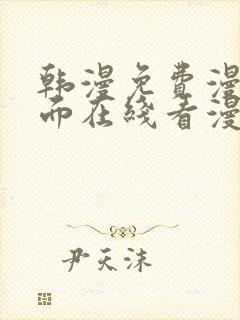 韩漫免费漫
而在线看漫
尹天沫